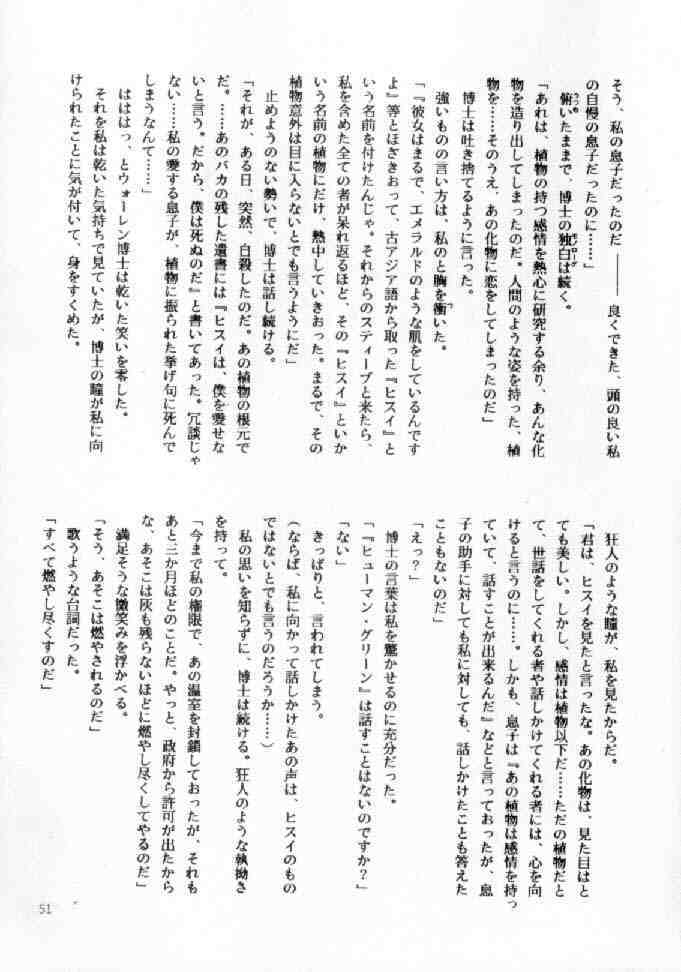 そう、私の息子だったのだ ──── 良くできた、頭の良い私
の自慢の息子だったのに……」
俯いたままで、博士の独白は続く。
「あれは、植物の持つ感情を熱心に研究する余り、あんな化
物を造り出してしまったのだ。人間のような姿を持った、植
物を……そのうえ、あの化物に恋をしてしまったのだ」
博士は吐き捨てるように言った。
強いものの言い方は、私のと胸を衝いた。
「『彼女はまるで、エメラルドのような肌をしているんです
よ』等とほさきおって、古アジア語から取った『ヒスイ』と
いう名前を付けたんじゃ。それからのスティーブと来たら、
私を含めた全ての者が呆れ返るほど、その『ヒスイ』といか
いう名前の植物にだけ、熱中していきおった。まるで、その
植物意外は目に入らないとでも言うようにだ」
止めようのない勢いで、博士は話し続ける。
「それが、ある日、突然、自殺したのだ。あの植物の根元で
だ。……あのバカの残した遺書には『ヒスイは、僕を愛せな
いと言う。だから、僕は死ぬのだ』と書いてあった。冗談じゃ
ない……私の愛する息子が、植物に振られた挙げ句に死んで
しまうなんて……」
はははっ、とウォーレン博士は乾いた笑いを零した。
それを私は乾いた気持ちで見ていたが、博士の瞳が私に向
けられたことに気が付いて、身をすくめた。
狂人のような瞳が、私を見たからだ。
「君は、ヒスイを見たと言ったな。あの化物は、見た目はと
ても美しい。しかし、感情は植物以下だ……ただの植物だと
て、世話をしてくれる者や話しかけてくれる者には、心を向
けると言うのに……。しかも、息子は『あの植物は感情を持っ
ていて、話すことが出来るんだ』などと言っておったが、息
子の助手に対しても私に対しても、話しかけたことも答えた
こともないのだ」
「えっ？」
博士の言葉は私を驚かせるのに充分だった。
「『ヒューマン・グリーン』は話すことはないのですか？」
「ない」
きっぱりと、言われてしまう。
（ならば、私に向かって話しかけたあの声は、ヒスイのもの
ではないとでも言うのだろうか……）
私の思いを知らずに、博士は続ける。狂人のような執拗さ
を持って。
「今まで私の権限で、あの温室を封鎖しておったが、それも
あと三か月ほどのことだ。やっと、政府から許可が出たから
な、あそこは灰も残らないほどに燃やし尽くしてやるのだ」
満足そうな微笑みを浮かべる。
「そう、あそこは燃やされるのだ」
歌うような台詞だった。
「すべて燃やし尽くすのだ」
51